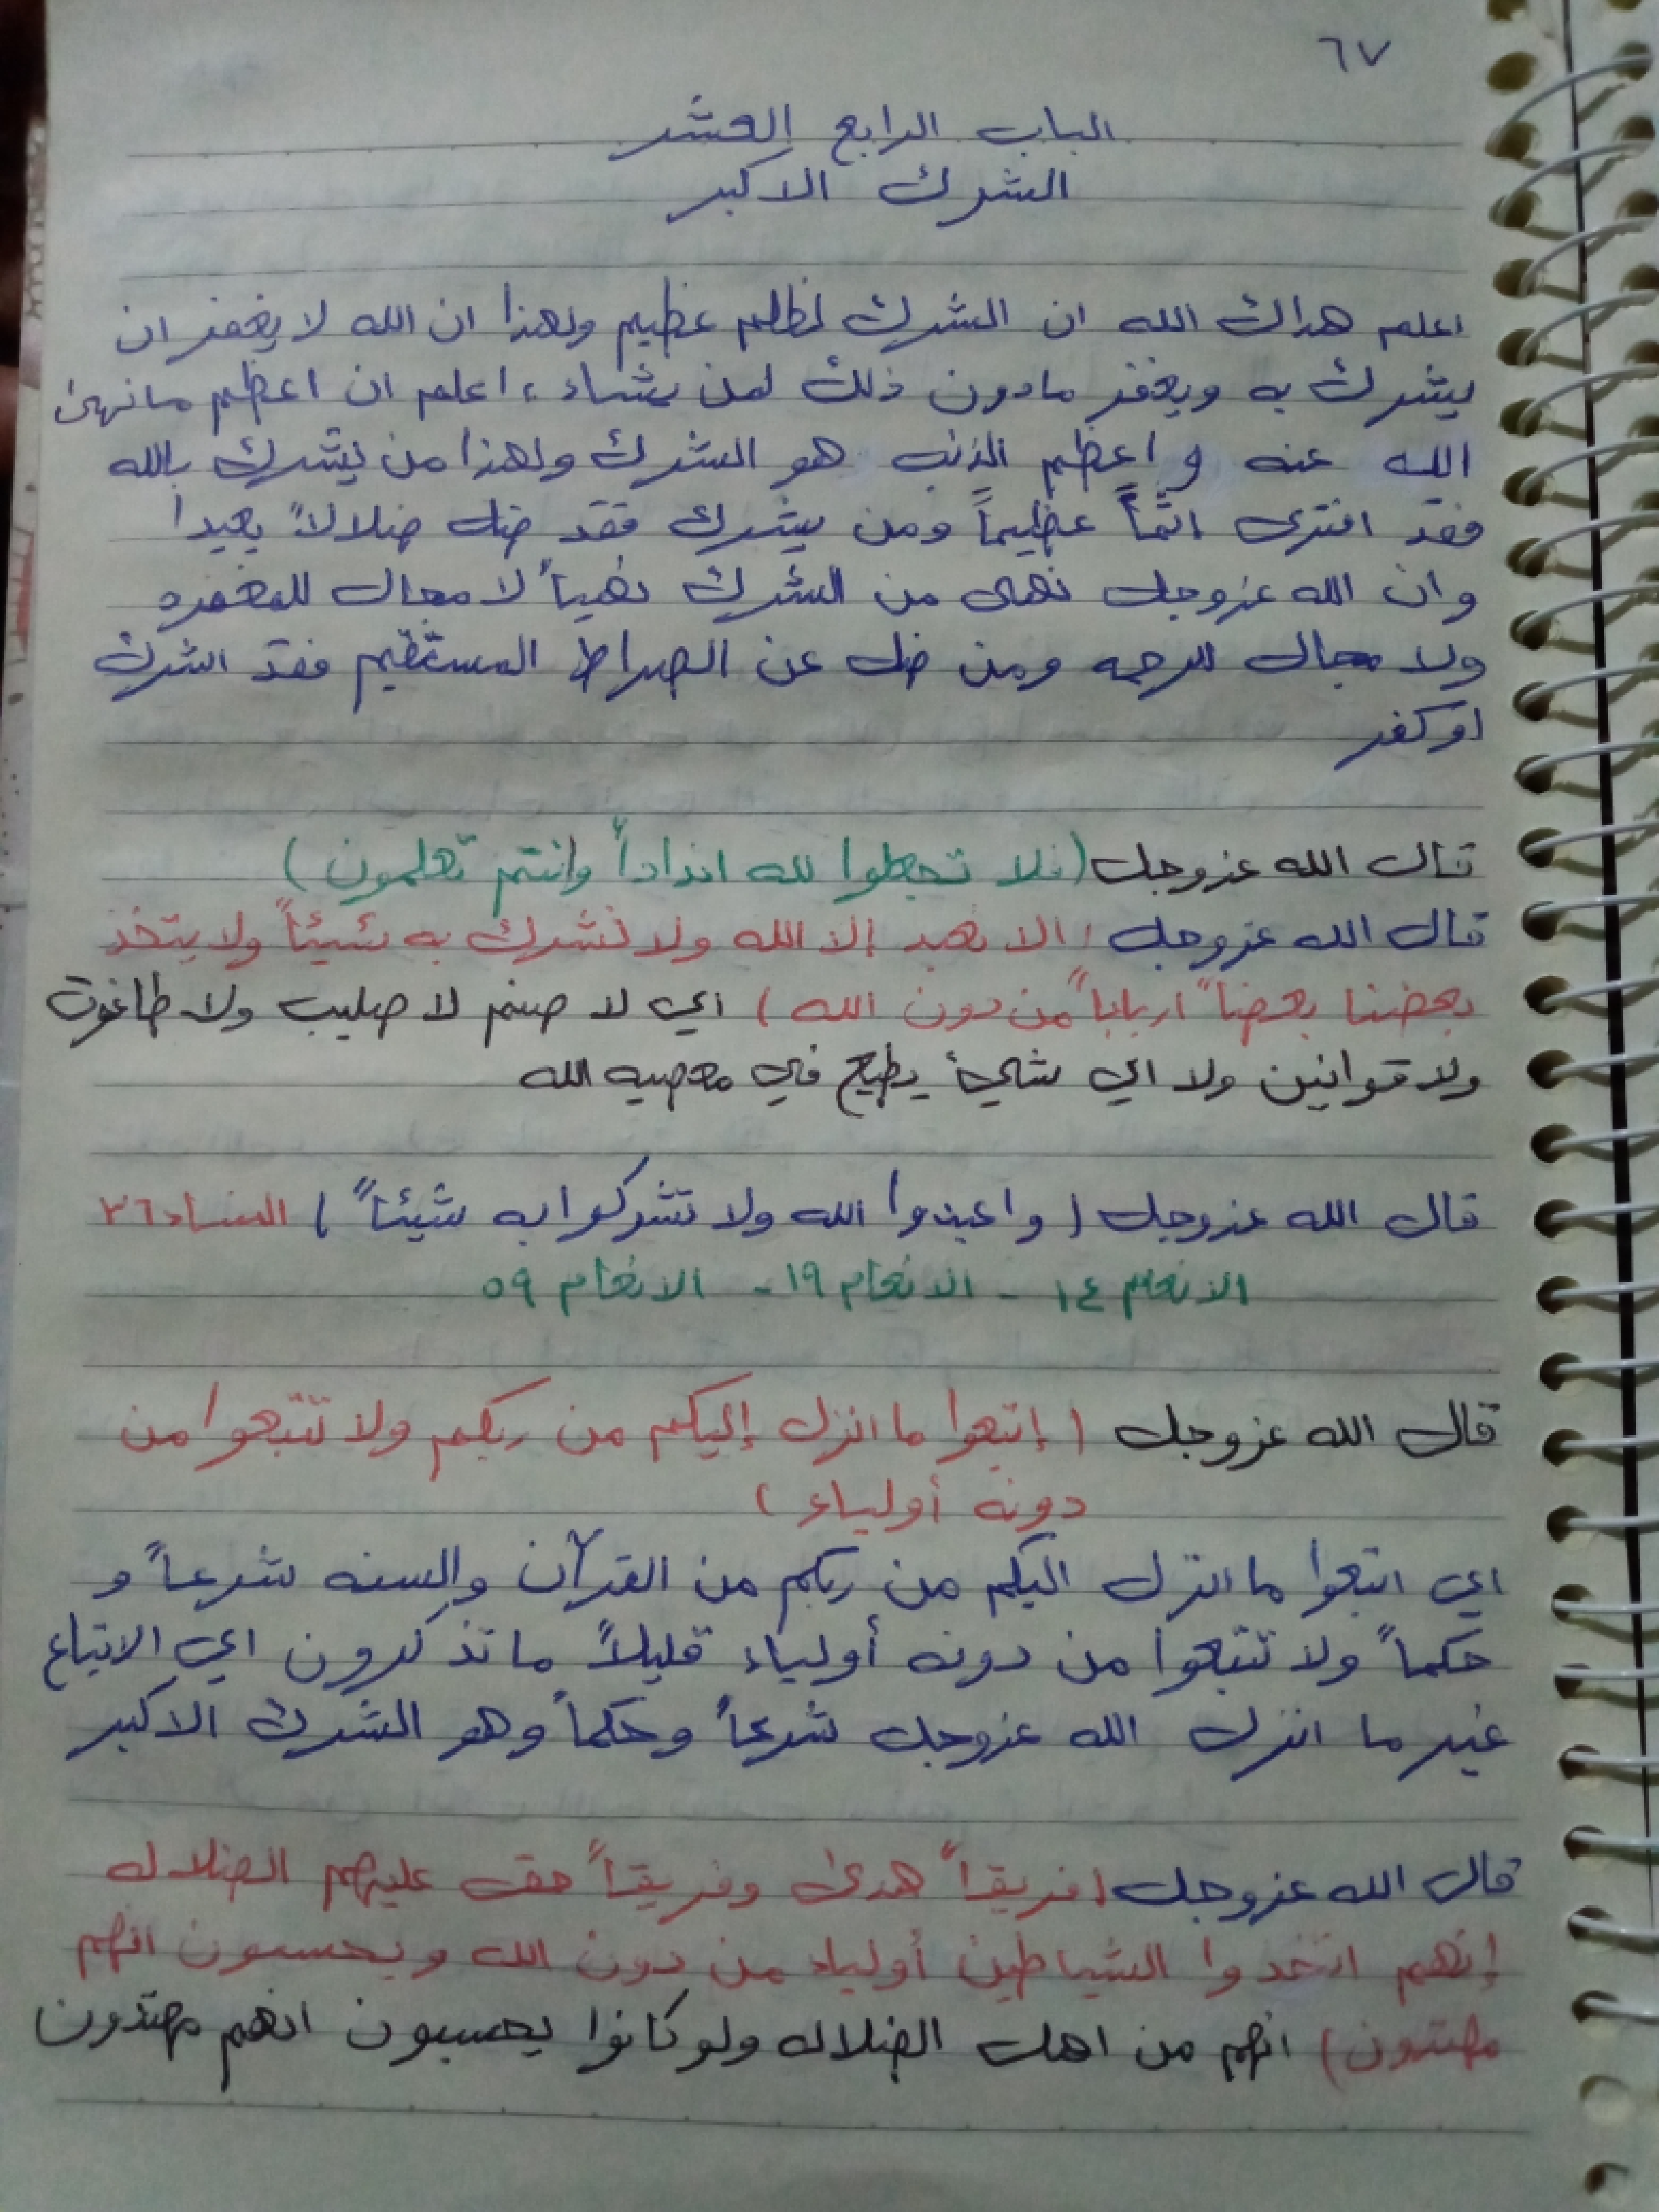 ٦٧
الباب الرابع العشر
الشرك الاكبر
اعلم هداك الله ان الشرك لظلم عظيم ولهذا ان الله لا يغفر ان
يشرك به ويغفر مادون ذلك لمن يشاء ، اعلم ان اعظم مانهئ
الله عنه و اعظم الذنب هو الشرك ولهذا من يشرك بالله
فقد افترى اثماً عظيماً ومن يشرك فقد ضل ضلالاً بعيدا
وان الله عزوجل نهى من الشرك نهياً لا مجال للمغفره
ولا مجال للرحمه ومن ضل عن الصراط المستقيم فقد اشرك
او كفر
قال الله عزوجل (فلا تجعلوا لله انداداً وانتم تعلمون)
قال الله عزوجل (الا نعبد إلا الله ولا نشرك به شيئاً ولا يتخذ
بعضنا بعضاً ارباباً من دون الله ) اي لا صنم لا صليب ولا طاغوت
ولا قوانين ولا اي شيئ يطيع في معصيه الله
قال الله عزوجل ( واعبدوا الله ولا تشركوا به شيئاً ) النساء ٣٦
الانعام ١٤ - الانعام ١٩ - الانعام ٥٩
قال الله عزوجل ( إتبعوا ما انزل إليكم من ربكم ولا تتبعوا من
دونه أولياء )
اي اتبعوا ما انزل اليكم من ربكم من القرآن والسنه شرعاً و
حكماً ولا تتبعوا من دونه أولياء قليلاً ما تذكرون اي الاتباع
غير ما انزل الله عزوجل شرعاً وحكماً وهو الشرك الاكبر
قال الله عزوجل (فريقاً هدئ وفريقاً حق عليهم الضلاله
إنهم اتخدوا الشياطين أولياء من دون الله ويحسبون انهم
مهتدون) انهم من اهل الضلاله ولو كانوا يحسبون انهم مهتدون